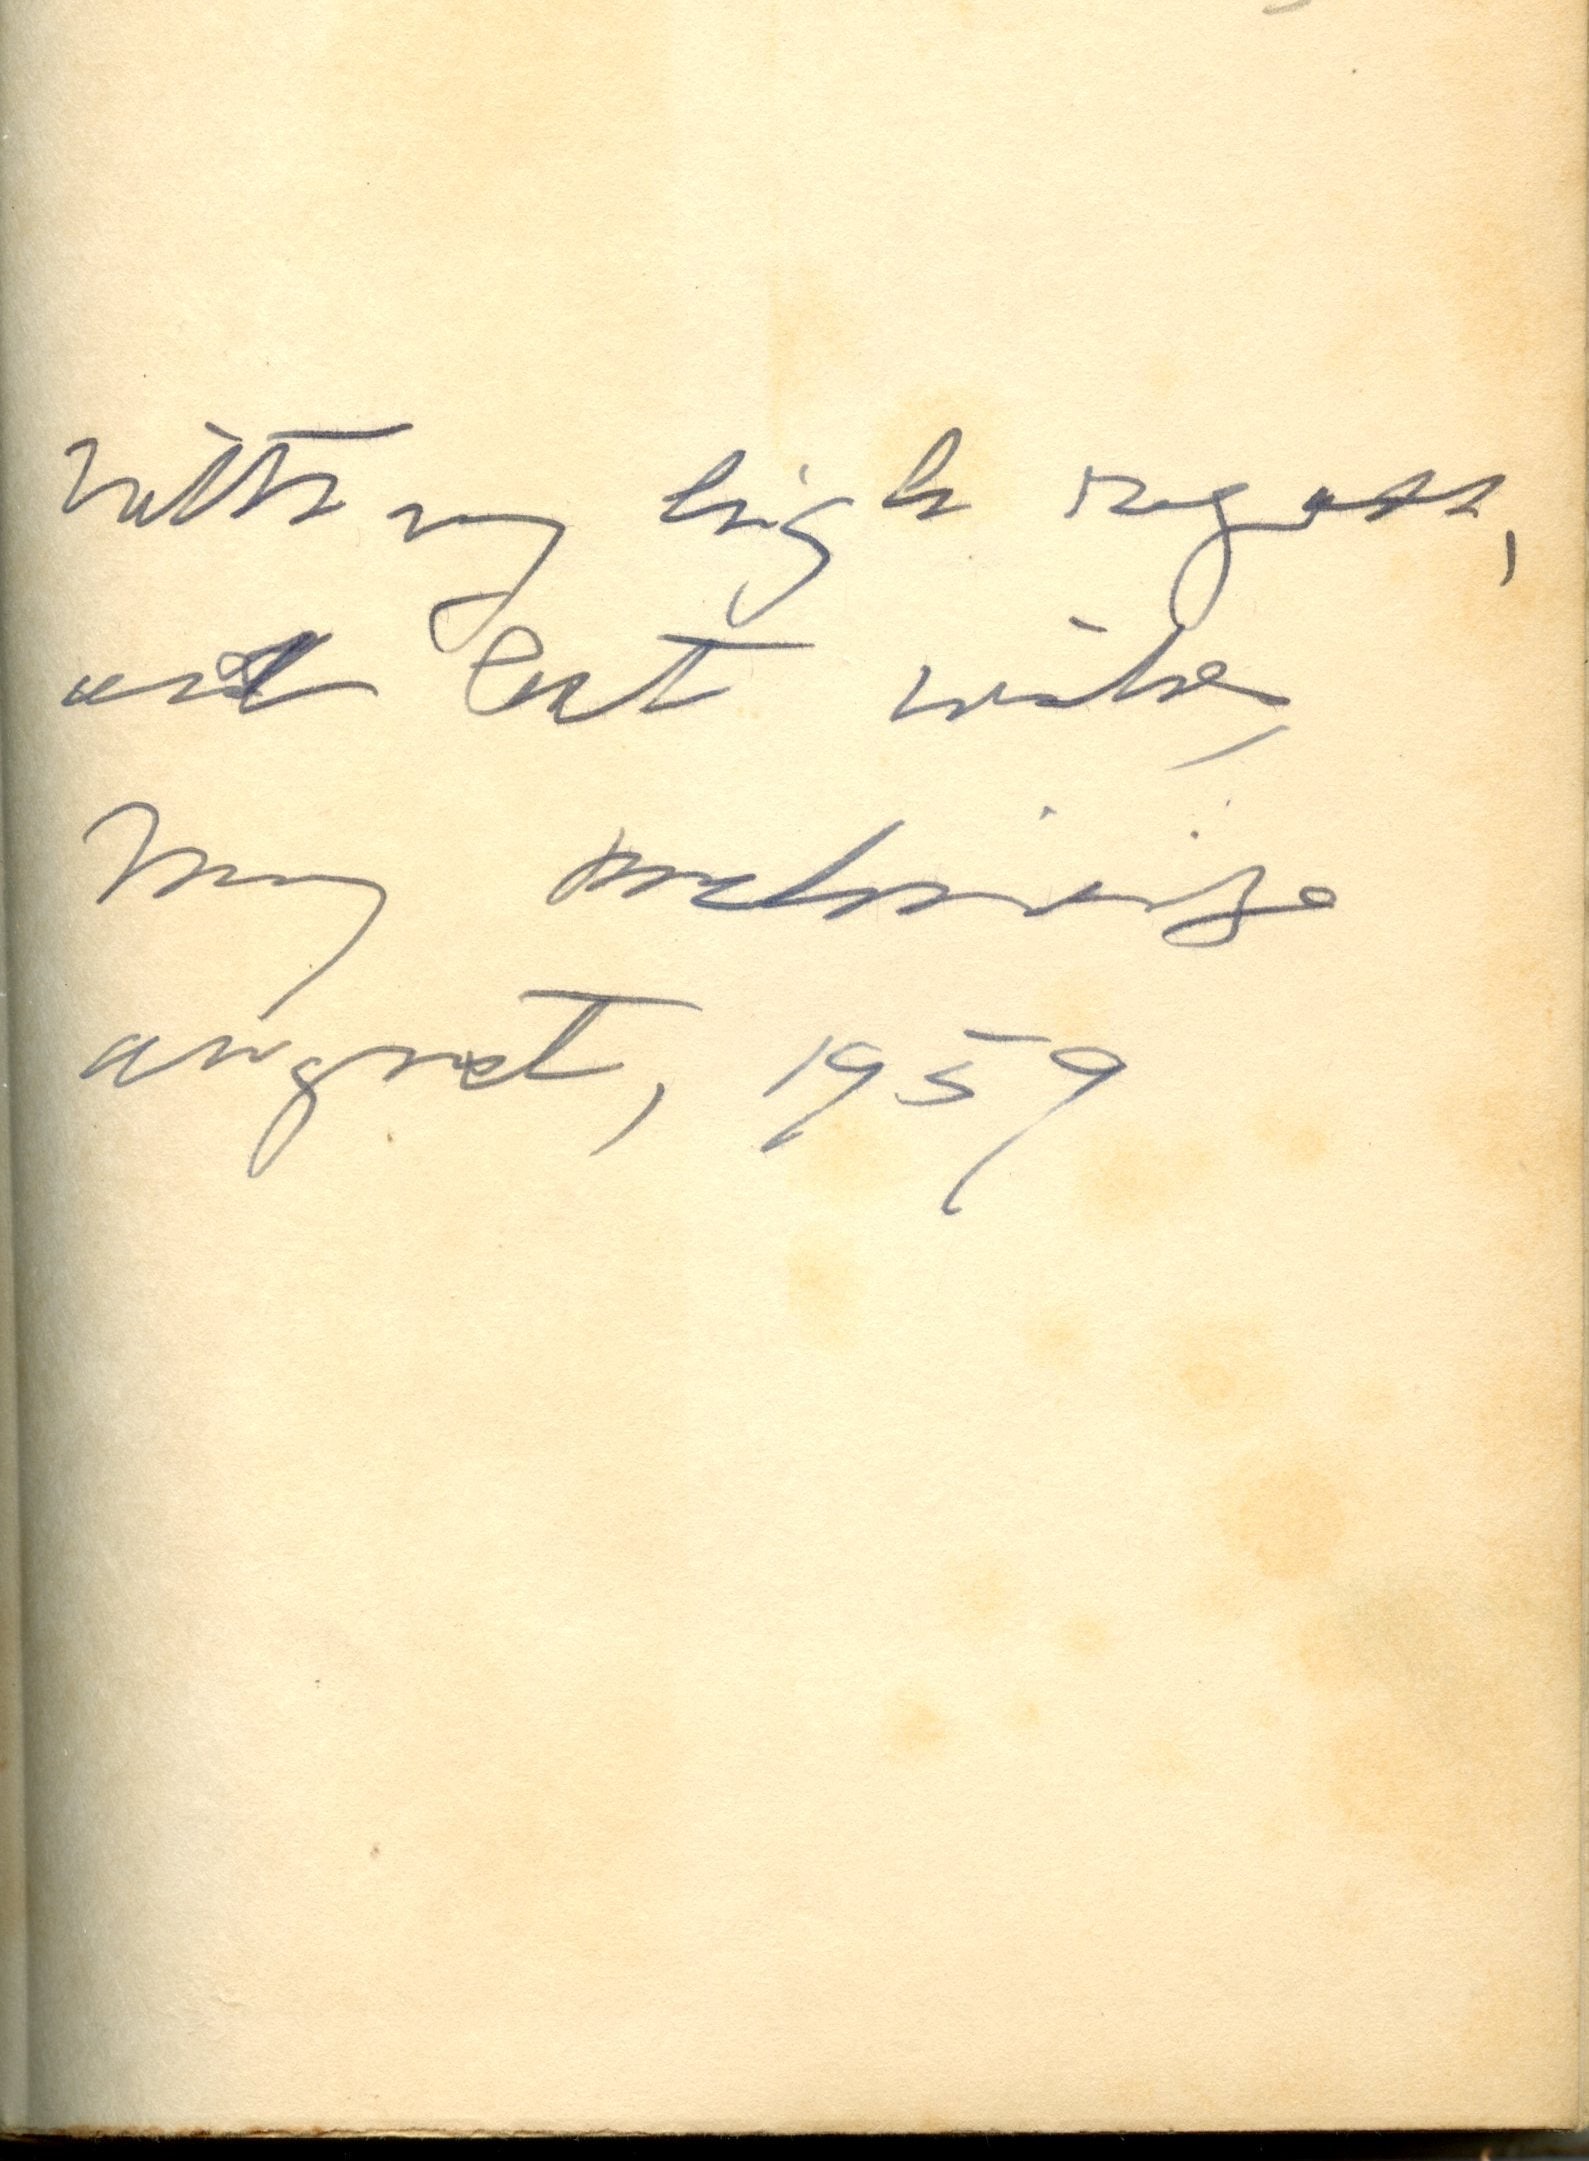 With my high regards,
and best wishes,
August, 1959